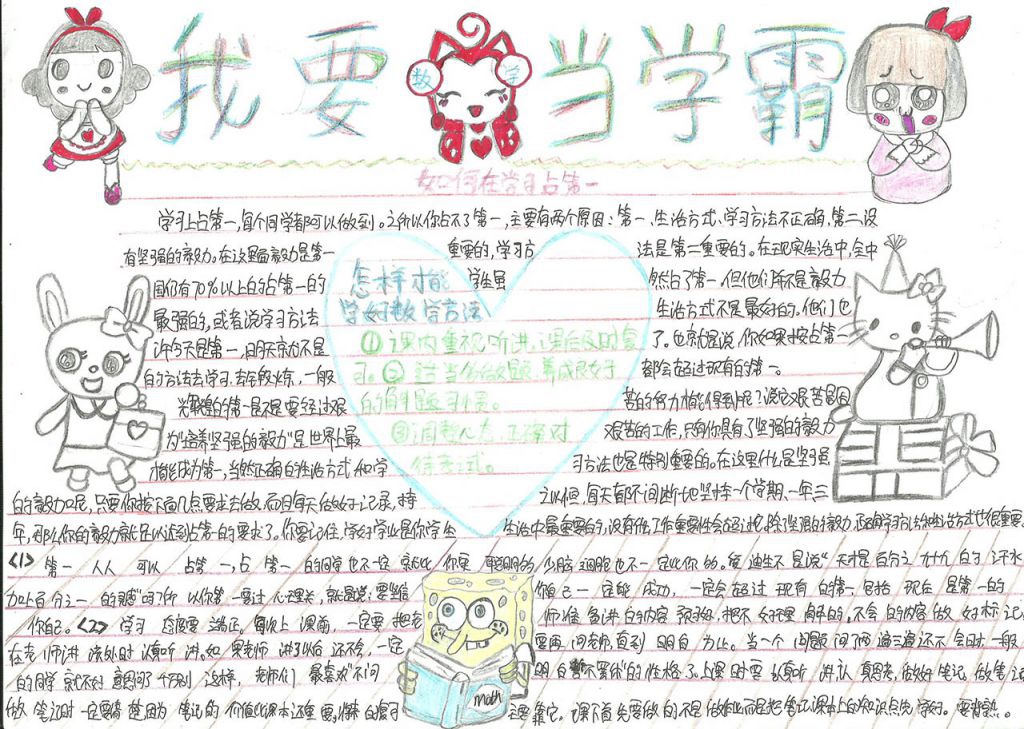 我要当学霸
数学
如何在学习占第一
学习上占第一,每个同学都可以做到。之所以你占不了第一,主要有两个原因:第一、生活方式、学习方法不正确,第二、没
有坚强的毅力。在这里面毅力是第一重要的,学习方法是第二重要的。在现实生活中,全中
国仍有70%以上的占第一的学生虽然占了第一,但他们并不是毅力
最强的,或者说学习方法生活方式不是最好的。他们也
许今天是第一,明天就不是了。也就是说,你如果按占第一
的方法去学习,去锻炼,一般都会超过现有的第一。
光辉煌的第一是不是要经过艰苦的努力才能得到呢?说它艰苦是因
为"培养坚强的毅力"是世界上最艰苦的工作,只有你具有了坚强的毅力
才能成为第一,当然正确的生活方式和学习方法也是特别重要的。在这里什么是坚强
的毅力呢,只要你按下面几点要求去做,而且每天做好记录,持之以恒,每天都不间断地坚持一个学期、一年、三
年,那么你的毅力就足以达到占第一的要求了。你要记住,学好学业是你学生生活中最重要的,没有什么工作重要性会超过它,除了坚强的毅力,正确学习方法和生活方式也很重要
怎样才能
学好数学方法
①课内重视听讲,课后及时复
习。②适当多做题,养成良好
的解题习惯。
③调整心态,正确对
待考试。
<1>第一人人可以占第一,占第一的同学也不一定就比你更聪明的
你自己一定能成功,一定会超过现有的第一,包括现在是第一的
你自己。<2>学习态度要端正。每次上课前,一定要把老师准备讲的内容预习好,把不好理解的、不会的内容做好标记,
在老师讲该处时认真听讲。如果老师讲了以后还不会,一定要再问老师,直到明白为止。当一个问题问两遍三遍还不会时,一般
的同学就不好意思问了,千万别这样,老师们最喜欢"不问明白不罢休"的性格了。上课时要认真听讲,认真思考,做好笔记。做笔记
做笔记时一定要清楚,因为笔记的价值比课本还重要,将来的复习主要靠它。
math